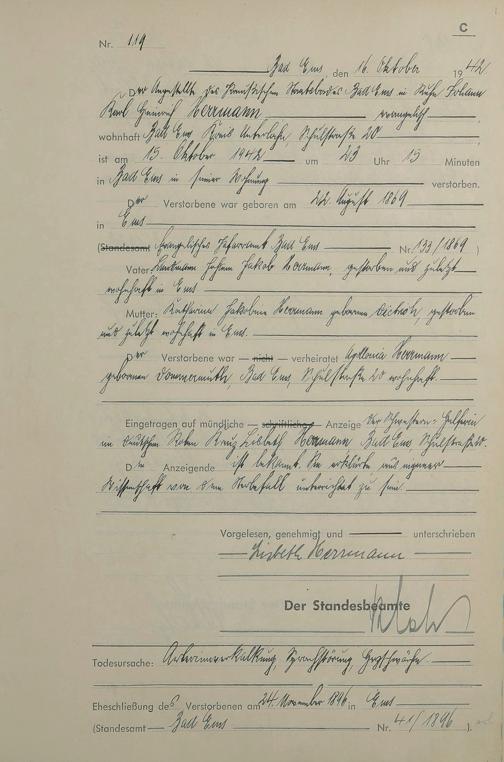 C
Nr. 119
Bad Ems, den 16. Oktober 1942
Der Angestellte des Preußischen Staatsbades Bad Ems in Ruhe Johann
Karl Heinrich Herrmann evangelisch
wohnhaft Bad Ems Kreis Unterlahn, Schulstraße 20
ist am 15. Oktober 1942 um 23 Uhr 15 Minuten
in Bad Ems in seiner Wohnung verstorben.
Der Verstorbene war geboren am 22. August 1869
in Ems
(Standesamt Evangelisches Pfarramt Bad Ems Nr. 133/1869)
Vater: Jakob Herrmann, gestorben und zuletzt
wohnhaft in Ems
Mutter: Katharine Jakobine Herrmann geborene Dietrich, gestorben
und zuletzt wohnhaft in Ems.
Der Verstorbene war — nicht — verheiratet Apllonia Herrmann
geborenen Dommermuth, Bad Ems, Schulstraße 20 wohnhaft.
Eingetragen auf mündliche — schriftliche — Anzeige der Schwestern-Helferin
im Deutschen Roten Kreuz Lisbeth Herrmann, Bad Ems, Schulstraße 20.
Die Anzeigende ist bekannt. Sie erklärte aus eigener
Wissenschaft von dem Sterbefall unterrichtet zu sein.
Vorgelesen, genehmigt und unterschrieben
Lisbeth Herrmann
Der Standesbeamte
Todesursache: Arterienverkalkung, Sprachstörung, Herzschwäche.
Eheschließung des Verstorbenen am 24. November 1896 in Ems
(Standesamt Bad Ems Nr. 41/1896).